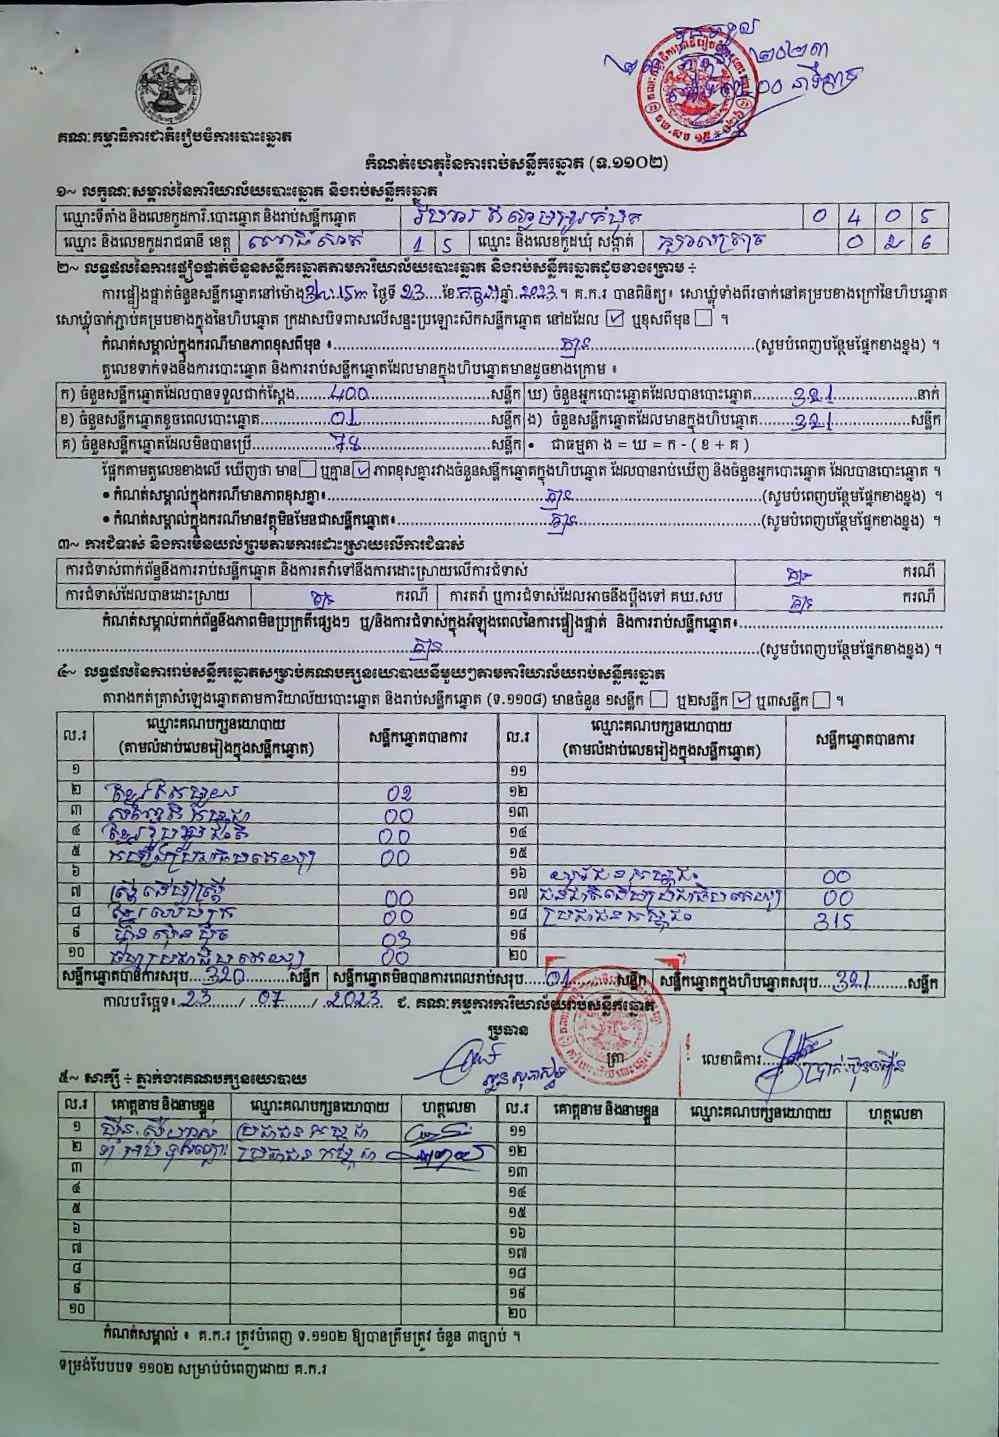 ២០២៣
គណៈកម្មាធិការជាតិរៀបចំការបោះឆ្នោត
កំណត់ហេតុនៃការរាប់សន្លឹកឆ្នោត (ទ.១១០២)
១~ លក្ខណៈសម្គាល់នៃការិយាល័យបោះឆ្នោត និងរាប់សន្លឹកឆ្នោត
ឈ្មោះទីតាំង និងលេខកូដការិ.បោះឆ្នោត និងរាប់សន្លឹកឆ្នោត 0 4 0 5
ឈ្មោះ និងលេខកូដរាជធានី ខេត្ត ពោធិ៍សាត់ 1 5 ឈ្មោះ និងលេខកូដឃុំ សង្កាត់ 0 2 6
២~ លទ្ធផលនៃការផ្ទៀងផ្ទាត់ចំនួនសន្លឹកឆ្នោតតាមការិយាល័យបោះឆ្នោត និងរាប់សន្លឹកឆ្នោតដូចខាងក្រោម ÷
ការផ្ទៀងផ្ទាត់ចំនួនសន្លឹកឆ្នោតនៅម៉ោង 3h:15m ថ្ងៃទី 23 ខែ កក្កដា ឆ្នាំ 2023 ។ គ.ក.រ បានពិនិត្យ៖ សោឃ្លុំទាំងពីរចាក់នៅគម្របខាងក្រៅនៃហិបឆ្នោត
សោឃ្លុំចាក់ភ្ជាប់គម្របខាងក្នុងនៃហិបឆ្នោត ក្រដាសបិទពាសលើសន្ទះប្រឡោះស៊កសន្លឹកឆ្នោត នៅដដែល ☑ ឬខុសពីមុន ☐ ។
កំណត់សម្គាល់ក្នុងករណីមានភាពខុសពីមុន ៖ គ្មាន (សូមបំពេញបន្ថែមផ្នែកខាងខ្នង) ។
តួលេខទាក់ទងនឹងការបោះឆ្នោត និងការរាប់សន្លឹកឆ្នោតដែលមានក្នុងហិបឆ្នោតមានដូចខាងក្រោម ៖
ក) ចំនួនសន្លឹកឆ្នោតដែលបានទទួលជាក់ស្តែង 400 សន្លឹក ឃ) ចំនួនអ្នកបោះឆ្នោតដែលបានបោះឆ្នោត 321 នាក់
ខ) ចំនួនសន្លឹកឆ្នោតខូចពេលបោះឆ្នោត 01 សន្លឹក ង) ចំនួនសន្លឹកឆ្នោតដែលមានក្នុងហិបឆ្នោត 321 សន្លឹក
គ) ចំនួនសន្លឹកឆ្នោតដែលមិនបានប្រើ 78 សន្លឹក • ជាធម្មតា ង = ឃ = ក - ( ខ + គ )
ផ្អែកតាមតួលេខខាងលើ ឃើញថា មាន ☐ ឬគ្មាន ☑ ភាពខុសគ្នារវាងចំនួនសន្លឹកឆ្នោតក្នុងហិបឆ្នោត ដែលបានរាប់ឃើញ និងចំនួនអ្នកបោះឆ្នោត ដែលបានបោះឆ្នោត ។
• កំណត់សម្គាល់ក្នុងករណីមានភាពខុសគ្នា៖ គ្មាន (សូមបំពេញបន្ថែមផ្នែកខាងខ្នង) ។
• កំណត់សម្គាល់ក្នុងករណីមានវត្ថុមិនមែនជាសន្លឹកឆ្នោត៖ គ្មាន (សូមបំពេញបន្ថែមផ្នែកខាងខ្នង) ។
៣~ ការជំទាស់ និងការមិនយល់ព្រមតាមការដោះស្រាយលើការជំទាស់
ការជំទាស់ពាក់ព័ន្ធនឹងការរាប់សន្លឹកឆ្នោត និងការតវ៉ាទៅនឹងការដោះស្រាយលើការជំទាស់ គ្មាន ករណី
ការជំទាស់ដែលបានដោះស្រាយ គ្មាន ករណី ការតវ៉ា ឬការជំទាស់ដែលអាចនឹងប្តឹងទៅ គឃ.សប គ្មាន ករណី
កំណត់សម្គាល់ពាក់ព័ន្ធនឹងភាពមិនប្រក្រតីផ្សេងៗ ឬ/និងការជំទាស់ក្នុងអំឡុងពេលនៃការផ្ទៀងផ្ទាត់ និងការរាប់សន្លឹកឆ្នោត៖
គ្មាន (សូមបំពេញបន្ថែមផ្នែកខាងខ្នង) ។
៤~ លទ្ធផលនៃការរាប់សន្លឹកឆ្នោតសម្រាប់គណបក្សនយោបាយនីមួយៗតាមការិយាល័យរាប់សន្លឹកឆ្នោត
តារាងកត់ត្រាសំឡេងឆ្នោតតាមការិយាល័យបោះឆ្នោត និងរាប់សន្លឹកឆ្នោត (ទ.១១០៨) មានចំនួន ១សន្លឹក ☐ ឬ២សន្លឹក ☑ ឬ៣សន្លឹក ☐ ។
ល.រ ឈ្មោះគណបក្សនយោបាយ (តាមលំដាប់លេខរៀងក្នុងសន្លឹកឆ្នោត) សន្លឹកឆ្នោតបានការ ល.រ ឈ្មោះគណបក្សនយោបាយ (តាមលំដាប់លេខរៀងក្នុងសន្លឹកឆ្នោត) សន្លឹកឆ្នោតបានការ
១ ១១
២ ខ្មែរតែមួយ 02 ១២
៣ 00 ១៣
៤ ខ្មែររួបរួមជាតិ 00 ១៤
៥ 00 ១៥
៦ ១៦ យុវជនកម្ពុជា 00
៧ ស្ត្រីដើម្បីស្ត្រី 00 ១៧ ជនជាតិដើមប្រជាធិបតេយ្យ 00
៨ 00 ១៨ ប្រជាជនកម្ពុជា 315
៩ ហ៊្វុនស៊ិនប៉ិច 03 ១៩
១០ 00 ២០
សន្លឹកឆ្នោតបានការសរុប 320 សន្លឹក សន្លឹកឆ្នោតមិនបានការពេលរាប់សរុប 01 សន្លឹក សន្លឹកឆ្នោតក្នុងហិបឆ្នោតសរុប 321 សន្លឹក
កាលបរិច្ឆេទ៖ 23 / 07 / 2023 ជ. គណៈកម្មការការិយាល័យរាប់សន្លឹកឆ្នោត
ប្រធាន
ត្រា លេខាធិការ
៥~ សាក្សី ÷ ភ្នាក់ងារគណបក្សនយោបាយ
ល.រ គោត្តនាម និងនាមខ្លួន ឈ្មោះគណបក្សនយោបាយ ហត្ថលេខា ល.រ គោត្តនាម និងនាមខ្លួន ឈ្មោះគណបក្សនយោបាយ ហត្ថលេខា
១ ប្រជាជនកម្ពុជា ១១
២ ប្រជាជនកម្ពុជា ១២
៣ ១៣
៤ ១៤
៥ ១៥
៦ ១៦
៧ ១៧
៨ ១៨
៩ ១៩
១០ ២០
កំណត់សម្គាល់ ៖ គ.ក.រ ត្រូវបំពេញ ទ.១១០២ ឱ្យបានត្រឹមត្រូវ ចំនួន ៣ច្បាប់ ។
ទម្រង់បែបបទ ១១០២ សម្រាប់បំពេញដោយ គ.ក.រ